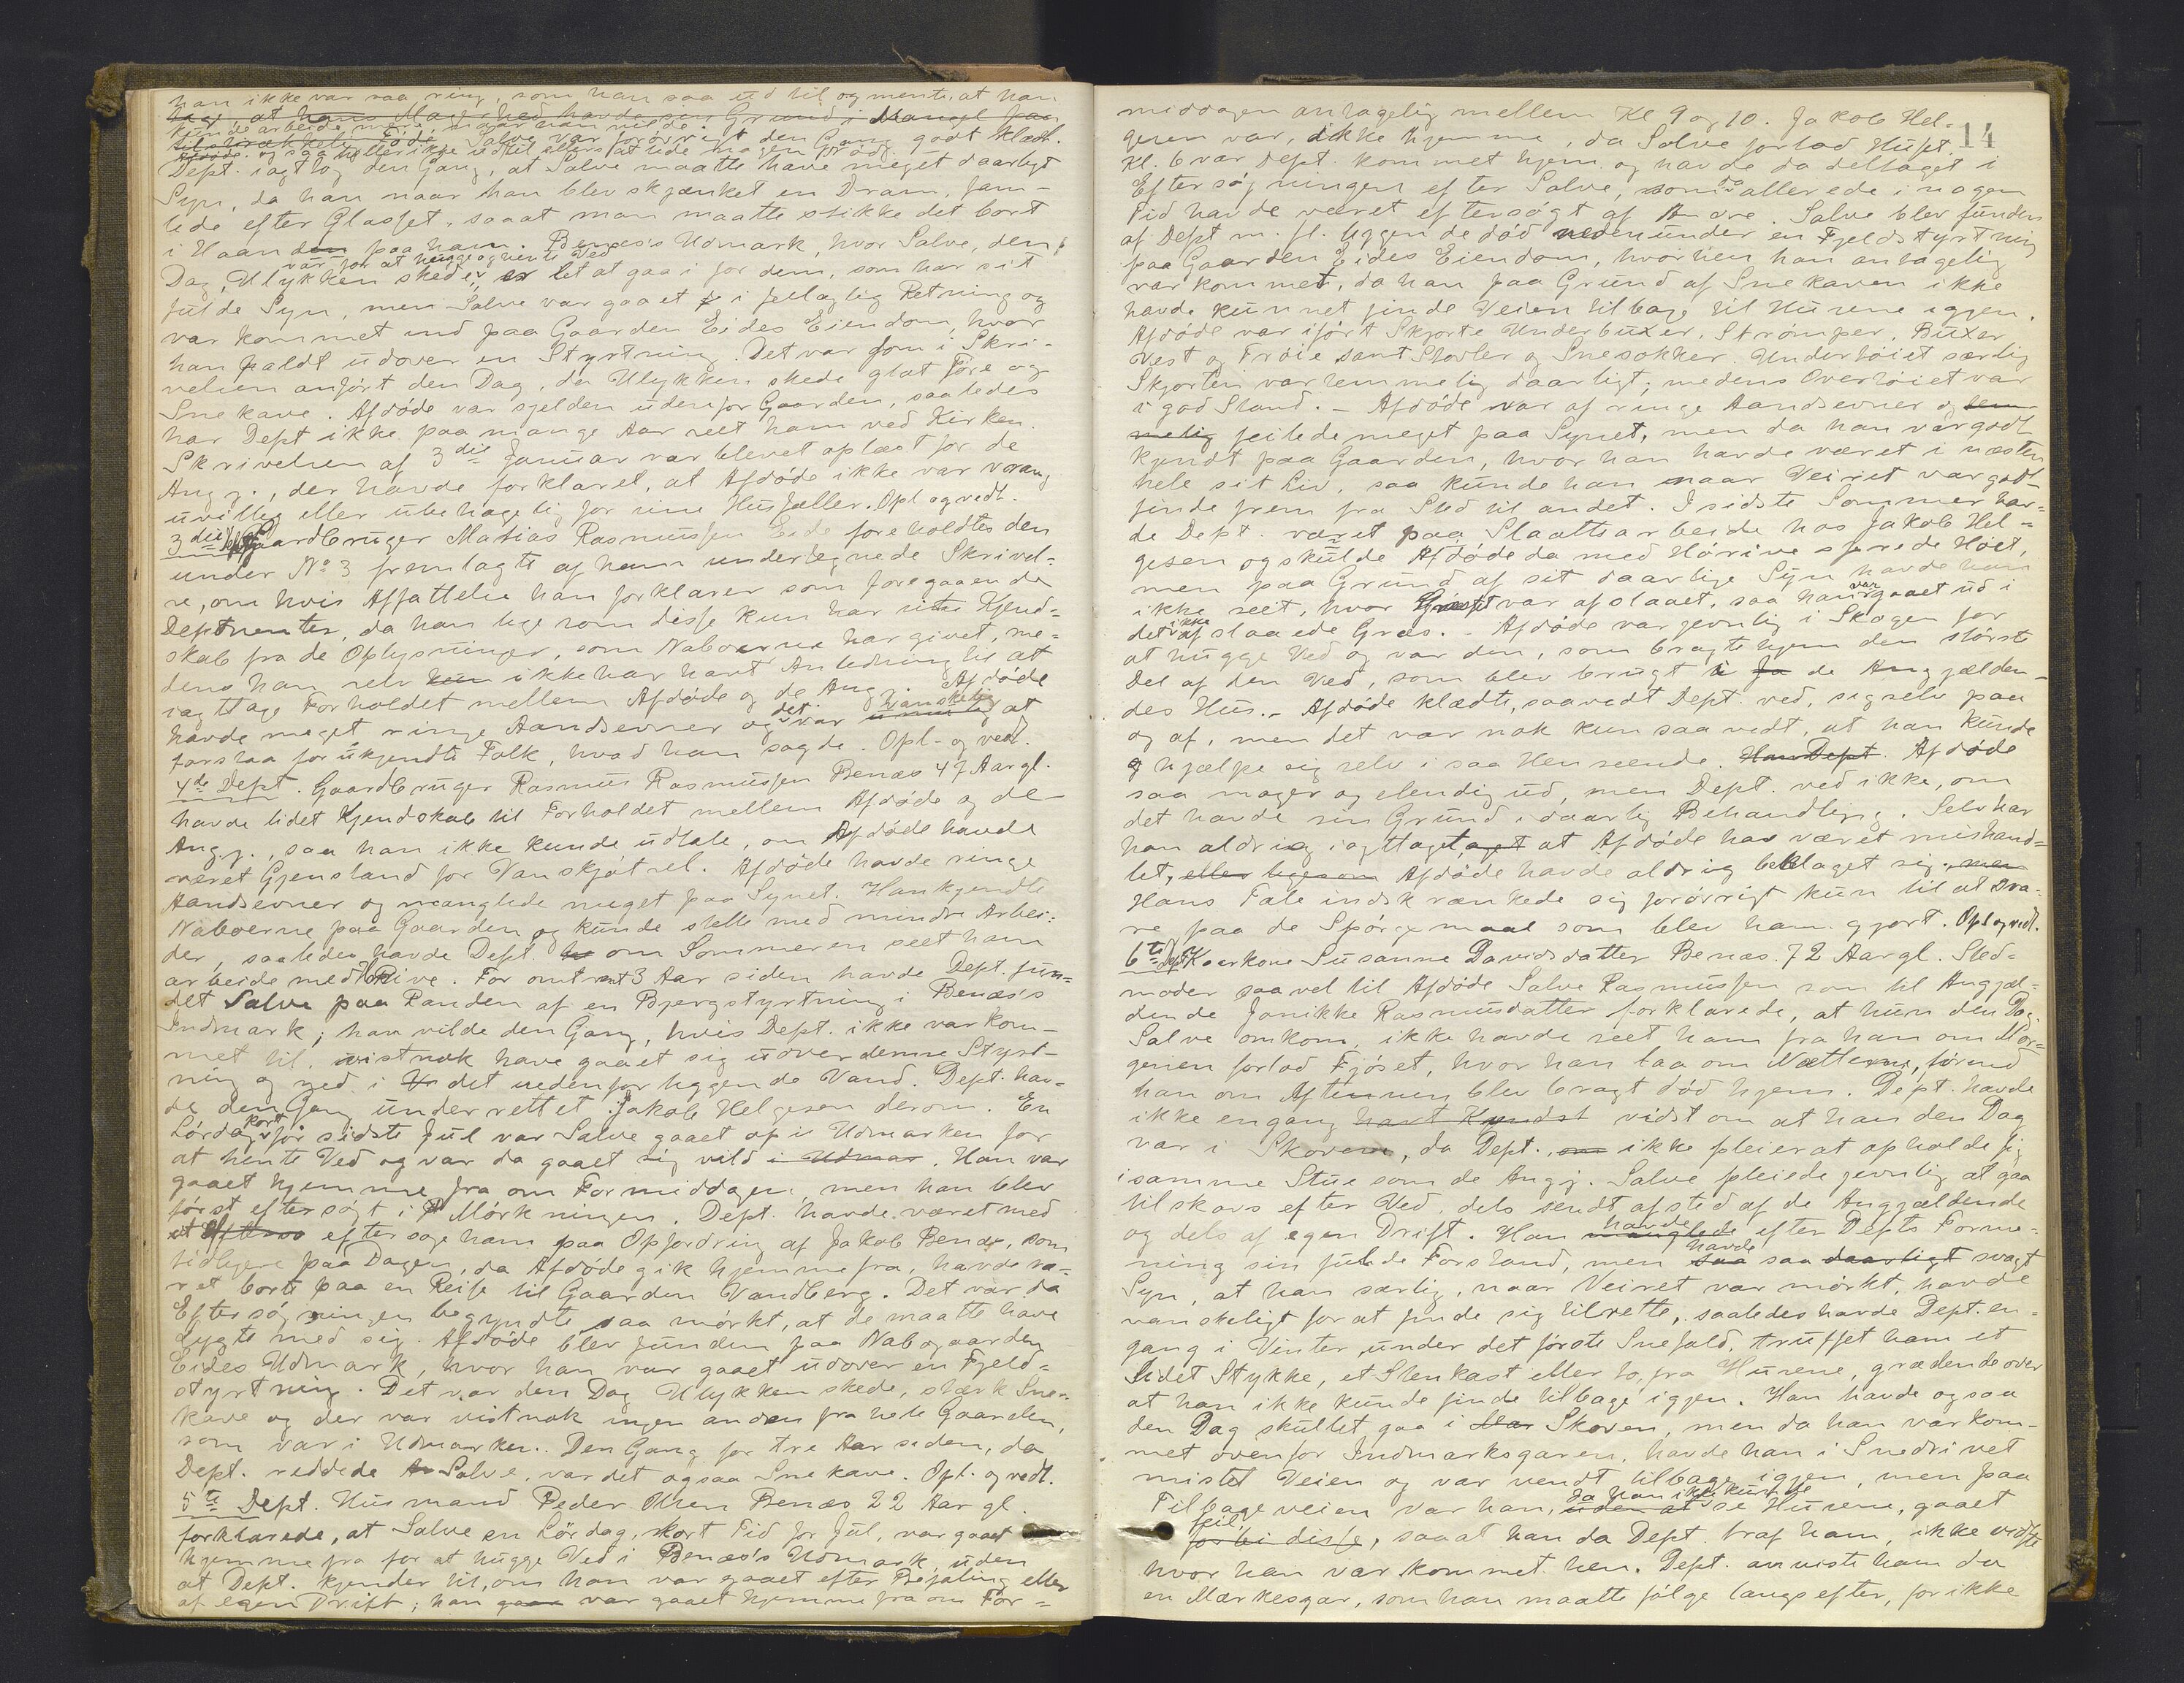 han ikke var saa ring, som han saa ud til og mente, at han
sagt, at hans Magerhed havde sin Grund i Mangel paa
kunde arbeide mere, naar han vilde.
tilstrækkelig Föde. Salve var forövrigt den Gang godt klædt.
Afdöde og saa heller ikke ud til ellers at lide nogen Nöd.
Dept. iagttog den Gang, at Salve maatte have meget daarligt
Syn, da han naar han blev skjænket en Dram, fam-
lede efter Glasset, saaat man maatte stikke det bort
i Haanden paa ham. Benæs's Udmark, hvor Salve, den
var for at hugge og hente Ved
Dag, Ulykken skede, er let at gaa i for dem, som har sit
fulde Syn, men Salve var gaaet i feilagtig Retning og
var kommet ind paa Gaarden Eides Eiendom, hvor
han faldt udover en Styrtning. Det var som i Skri-
velsen anfört den Dag, da Ulykken skede glat Före og
Snekave. Afdöde var sjelden udenfor Gaarden, saaledes
har Dept ikke paa mange Aar seet ham ved Kirken.
Skrivelsen af 3die Januar var blevet oplæst for de
Angj., der havde forklaret, at Afdöde ikke var vrang
uvillig eller ubehagelig for sine Husfæller. Opl og vedt.
3die Dept Gaardbruger Matias Rasmussen Eide foreholdtes den
under No 3 fremlagte af ham undertegnede Skrivel-
se, om hvis Affattelse han forklarer som foregaaende
Deptnenter, da han lige som disse kun har sitt Kjend-
skab fra de Oplysninger, som Naboerne har givet, me-
dens han selv kun ikke har havt Anledning til at
iagttage Forholdet mellem Afdöde og de Angj. Afdöde
havde meget ringe Aandsevner og det var umulig vanskelig at
forstaa for ukjendte Folk, hvad han sagde. Opl- og vedt.
4de Dept. Gaardbruger Rasmus Rasmussen Benæs 47 Aar gl.
havde lidet Kjendskab til Forholdet mellem Afdöde og de
Angj., saa han ikke kunde udtale, om Afdöde havde
været Gjenstand for Vanskjötsel. Afdöde havde ringe
Aandsevner og manglede meget paa Synet. Han kjendte
Naboerne paa Gaarden og kunde stelle med mindre Arbei-
der, saaledes havde Dept. om Sommeren seet ham
arbeide med Rive. For omtrent 3 Aar siden havde Dept. fun-
det Salve paa Randen af en Bjergstyrtning i Benæs's
Indmark; han vilde den Gang, hvis Dept. ikke var kom-
met til, vistnok have gaaet sig udover denne Styrt-
ning og ned i det nedenfor liggende Vand. Dept. hav-
de den Gang underrettet Jakob Helgesen derom. En
Lördag kort för sidste Jul var Salve gaaet op i Udmarken for
at hente Ved og var da gaaet sig vild i Udmar. Han var
gaaet hjemme fra om Formiddagen, men han blev
först eftersögt i Mörkningen. Dept. havde været med
at eftersöge ham paa Opfordring af Jakob Benæs, som
tidligere paa Dagen, da Afdöde gik hjemmefra, havde væ-
ret borte paa en Reise til Gaarden Vandberg. Det var da
Eftersögningen begyndte saa mörkt, at de maatte have
Lygte med sig. Afdöde blev funden paa Nabogaarden
Eides Udmark, hvor han var gaaet udover en Fjeld-
styrtning. Det var den Dag Ulykken skede, stærk Sne-
kave og der var vistnok ingen anden fra hele Gaarden,
som var i Udmarken. Den Gang for tre Aar siden, da
Dept. reddede Salve, var det ogsaa Snekave. Opl. og vedt.
5te Dept. Husmand Peder Olsen Benæs 22 Aar gl.
forklarede, at Salve en Lördag, kort Tid för Jul, var gaaet
hjemme fra for at hugge Ved i Benæs's Udmark uden
at Dept. kjender til, om han var gaaet efter Befaling eller
af egen Drift; han var gaaet hjemme fra om For-
14
middagen antagelig mellem Kl 9 og 10. Jakob Hel-
gesen var, ikke hjemme, da Salve forlod Huset.
Kl. 6 var Dept. kommet hjem og havde da deltaget i
Eftersögningen efter Salve, som allerede i nogen
Tid havde været eftersögt af Andre. Salve blev funden
af Dept m. fl. liggende död nedenunder en Fjeldstyrtning
paa Gaarden Eides Eiendom, hvorhen han antagelig
var kommet, da han paa Grund af Snekaven ikke
havde kunnet finde Veien tilbage til Husene igjen.
Afdöde var ifört Skjorte Underbuxer, Strömper, Buxer
Vest og Tröie samt Stövler og Snesokker. Undertöiet særlig
Skjorten var temmelig daarligt, medens Overtöiet var
i god Stand. - Afdöde var af ringe Aandsevner og tem
melig feilede meget paa Synet, men da han var godt
kjendt paa Gaarden, hvor han havde været i næsten
hele sit Liv, saa kunde han naar Veiret var godt
finde frem fra Sted til andet. I sidste Sommer hav-
de Dept. været paa Slaattearbeide hos Jakob Hel-
gesen og skulde Afdöde da med Hörive sprede Höet,
men paa Grund af sit daarlige Syn havde han
ikke seet, hvor Græsset var afslaaet, saa han var gaaet ud i
det ikke afslaaede Græs. - Afdöde var jevnlig i Skogen for
at hugge Ved og var den, som bragte hjem den störste
Del af den Ved, som blev brugt i de Anggjælden-
des Hus. - Afdöde klædte, saavidt Dept. ved, sig selv paa
og af, men det var nok kun saavidt, at han kunde
hjælpe sig selv i saa Henseende. Han Dept. Afdöde
saa mager og elendig ud, men Dept. ved ikke, om
det havde sin Grund i daarlig Behandling. Selv har
han aldrig iagttaget at Afdöde har været mishand-
let, eller ligesom Afdöde havde aldrig beklaget sig, men
Hans Tale indskrænkede sig forövrigt kun til at sva-
re paa de Spörgsmaal som blev ham gjort. Opl og vedt.
6te Dept Kaarkone Susanne Davidsdatter Benæs 72 Aar gl. Sted-
moder saavel til Afdöde Salve Rasmussen som til Anggjæl-
dende Janikke Rasmusdatter forklarede, at hun den Dag
Salve omkom, ikke havde seet ham fra han om Mor-
genen forlod Fjöset, hvor han laa om Nætterne, förend
han om Aftenen blev bragt död hjem. Dept. havde
ikke engang havt Kyndst vidst om at han den Dag
var i Skoven, da Dept. ikke pleier at opholde sig
i samme Stue som de Angj. Salve pleiede jevnlig at gaa
tilskovs efter Ved, dels sendt afsted af de Anggjældende
og dels af egen Drift. Han manglede havde efter Depts Forme-
ning sin fulde Forstand, men saa havde saa daarligt svagt
Syn, at han særlig, naar Veiret var mörkt, havde
vanskeligt for at finde sig tilrette, saaledes havde Dept. en-
gang i Vinter, under det förste Snefald, truffet ham et
lidet Stykke, et Stenkast eller to, fra Husene, grædende over
at han ikke kunde finde tilbage igjen. Han havde ogsaa
den Dag skullet gaa i Skoven, men da han var kom-
met ovenfor Indmarksgaren, havde han i Snedrivet
mistet Veien og var vendt tilbage igjen, men paa
Tilbageveien var han, uden at da han ikke kunde se Husene, gaaet
feil,
forbi disse, saaat han da Dept. traf ham, ikke vidste
hvor han var kommet hen. Dept. anviste ham da
en Mærkesgar, som han maatte fölge langs efter, for ikke